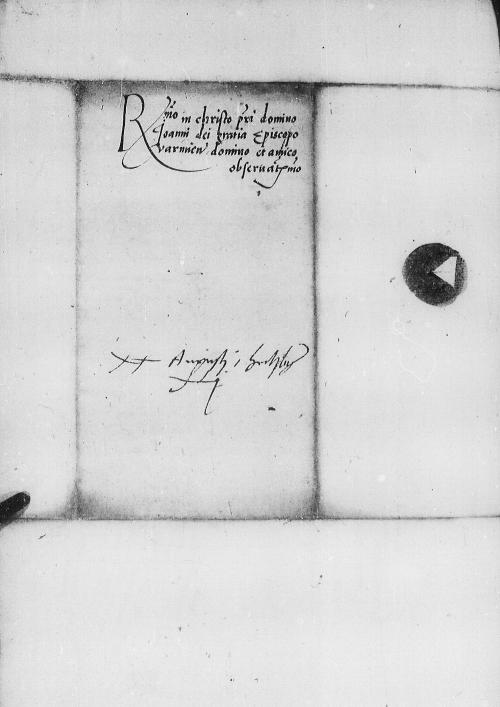 R mo in christo pri domino
Joanni dei gratia Episcopo
Varmien domino et amico
observatmo
Augusti